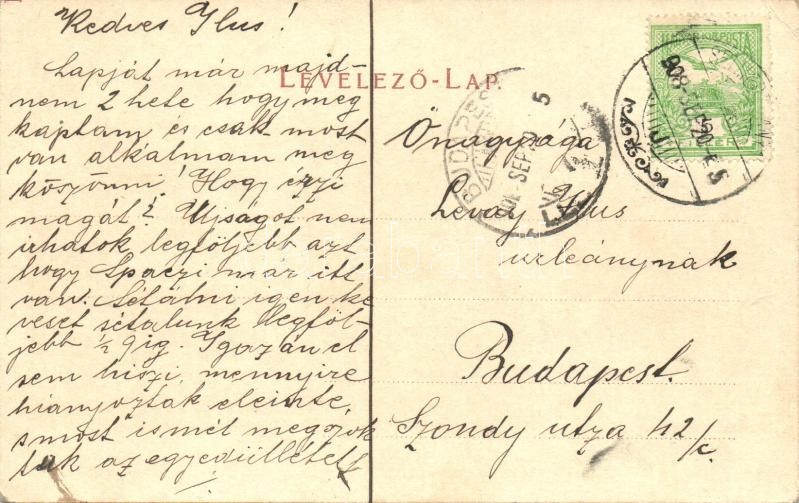 Kedves Ilus!
Lapját már majd-
nem 2 hete hogy meg
kaptam és csak most
van alkalmam meg
köszönni! Hogy érzi
magát? Ujságot nem
irhatok legföljebb azt
hogy Spaczi már itt
van. Sétálni igen ke
veset sétálunk legföl-
jebb ½ 9ig. Igazán el
sem hiszi, mennyire
hiányoztak eleinte,
s most ismét megszok
tuk az egyedüllétet
LEVELEZŐ-LAP.
Önagysága
Levay Ilus
urleánynak
Budapest.
Szondy utza 42/c.
908 SEP 20